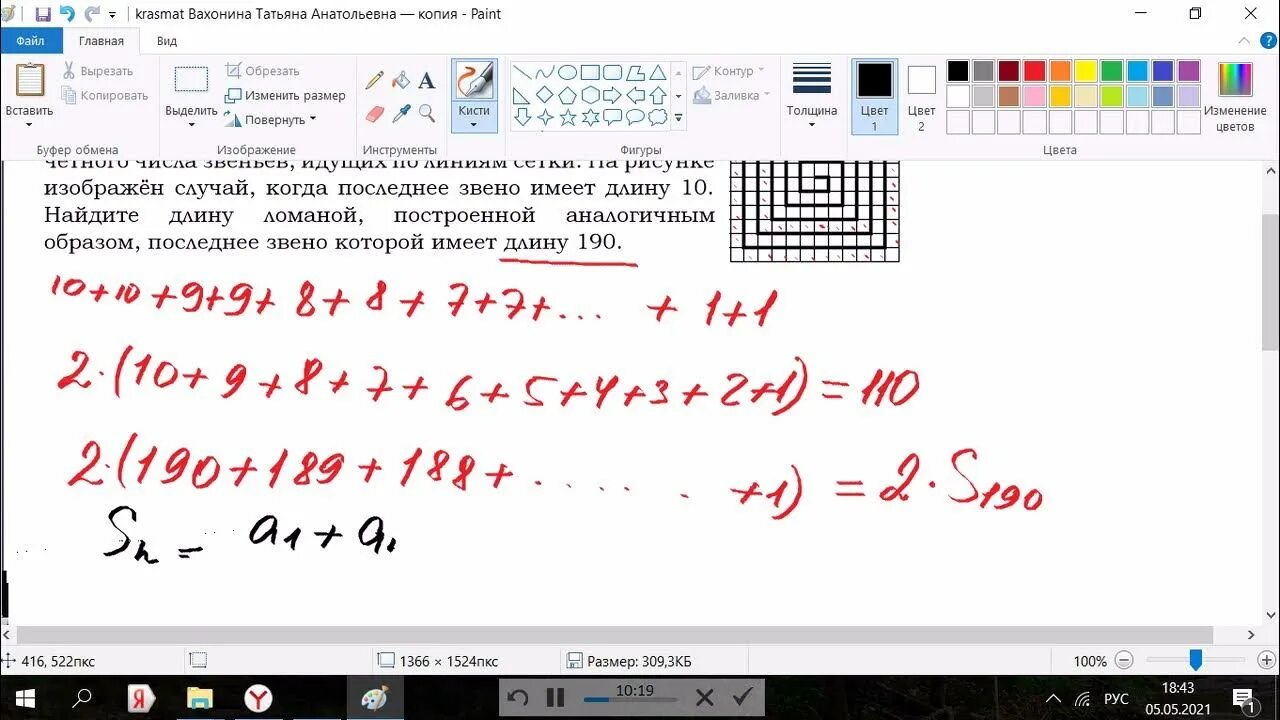 krasmat Вахонина Татьяна Анатольевна — копия - Paint
Файл Главная Вид
Вставить
Вырезать
Копировать
Буфер обмена
Выделить
Обрезать
Изменить размер
Повернуть
Изображение
A
Инструменты
Кисти
Контур
Заливка
Фигуры
Толщина
Цвет 1
Цвет 2
Изменение цветов
Цвета
четного числа звеньев, идущих по линиям сетки. На рисунке
изображён случай, когда последнее звено имеет длину 10.
Найдите длину ломаной, построенной аналогичным
образом, последнее звено которой имеет длину 190.
10+10+9+9+8+8+7+7+... +1+1
2·(10+9+8+7+6+5+4+3+2+1)=110
2·(190+189+188+...... +1)=2·S190
Sn = a1+a
416, 522пкс 1366 × 1524пкс Размер: 309,3КБ 100%
10:19
РУС
18:43
05.05.2021
1